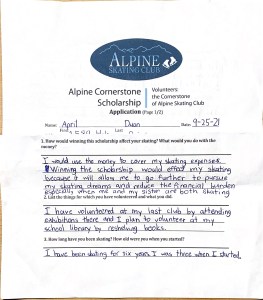 ALPINE
SKATING CLUB
Alpine Cornerstone
Scholarship
Volunteers:
the Cornerstone
of Alpine Skating Club
Application (Page 1/2)
Name: April Duan Date: 9-25-21
First Last
1. How would winning this scholarship affect your skating? What would you do with the
money?
I would use the money to cover my skating expenses.
Winning the scholarship would effect my skating
because it will allow me to go further to pursue
my skating dreams and reduce the financial burden
especially when me and my sister are both skating
2. List the things for which you have volunteered and what you did.
I have volunteered at my last club by attending
exhibitions there and I plan to volunteer at my
school library by reshelving books.
3. How long have you been skating? How old were you when you started?
I have been skating for six years. I was three when I started.